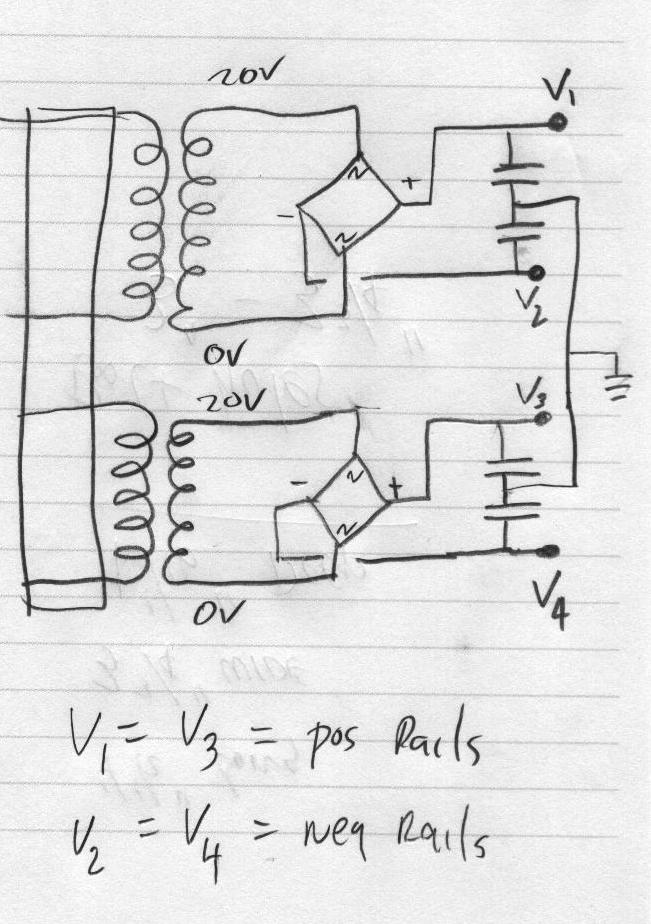 20V
V1
~
+
-
~
V2
0V
20V
V3
~
-
+
~
0V
V4
V1 = V3 = pos Rails
V2 = V4 = neg Rails